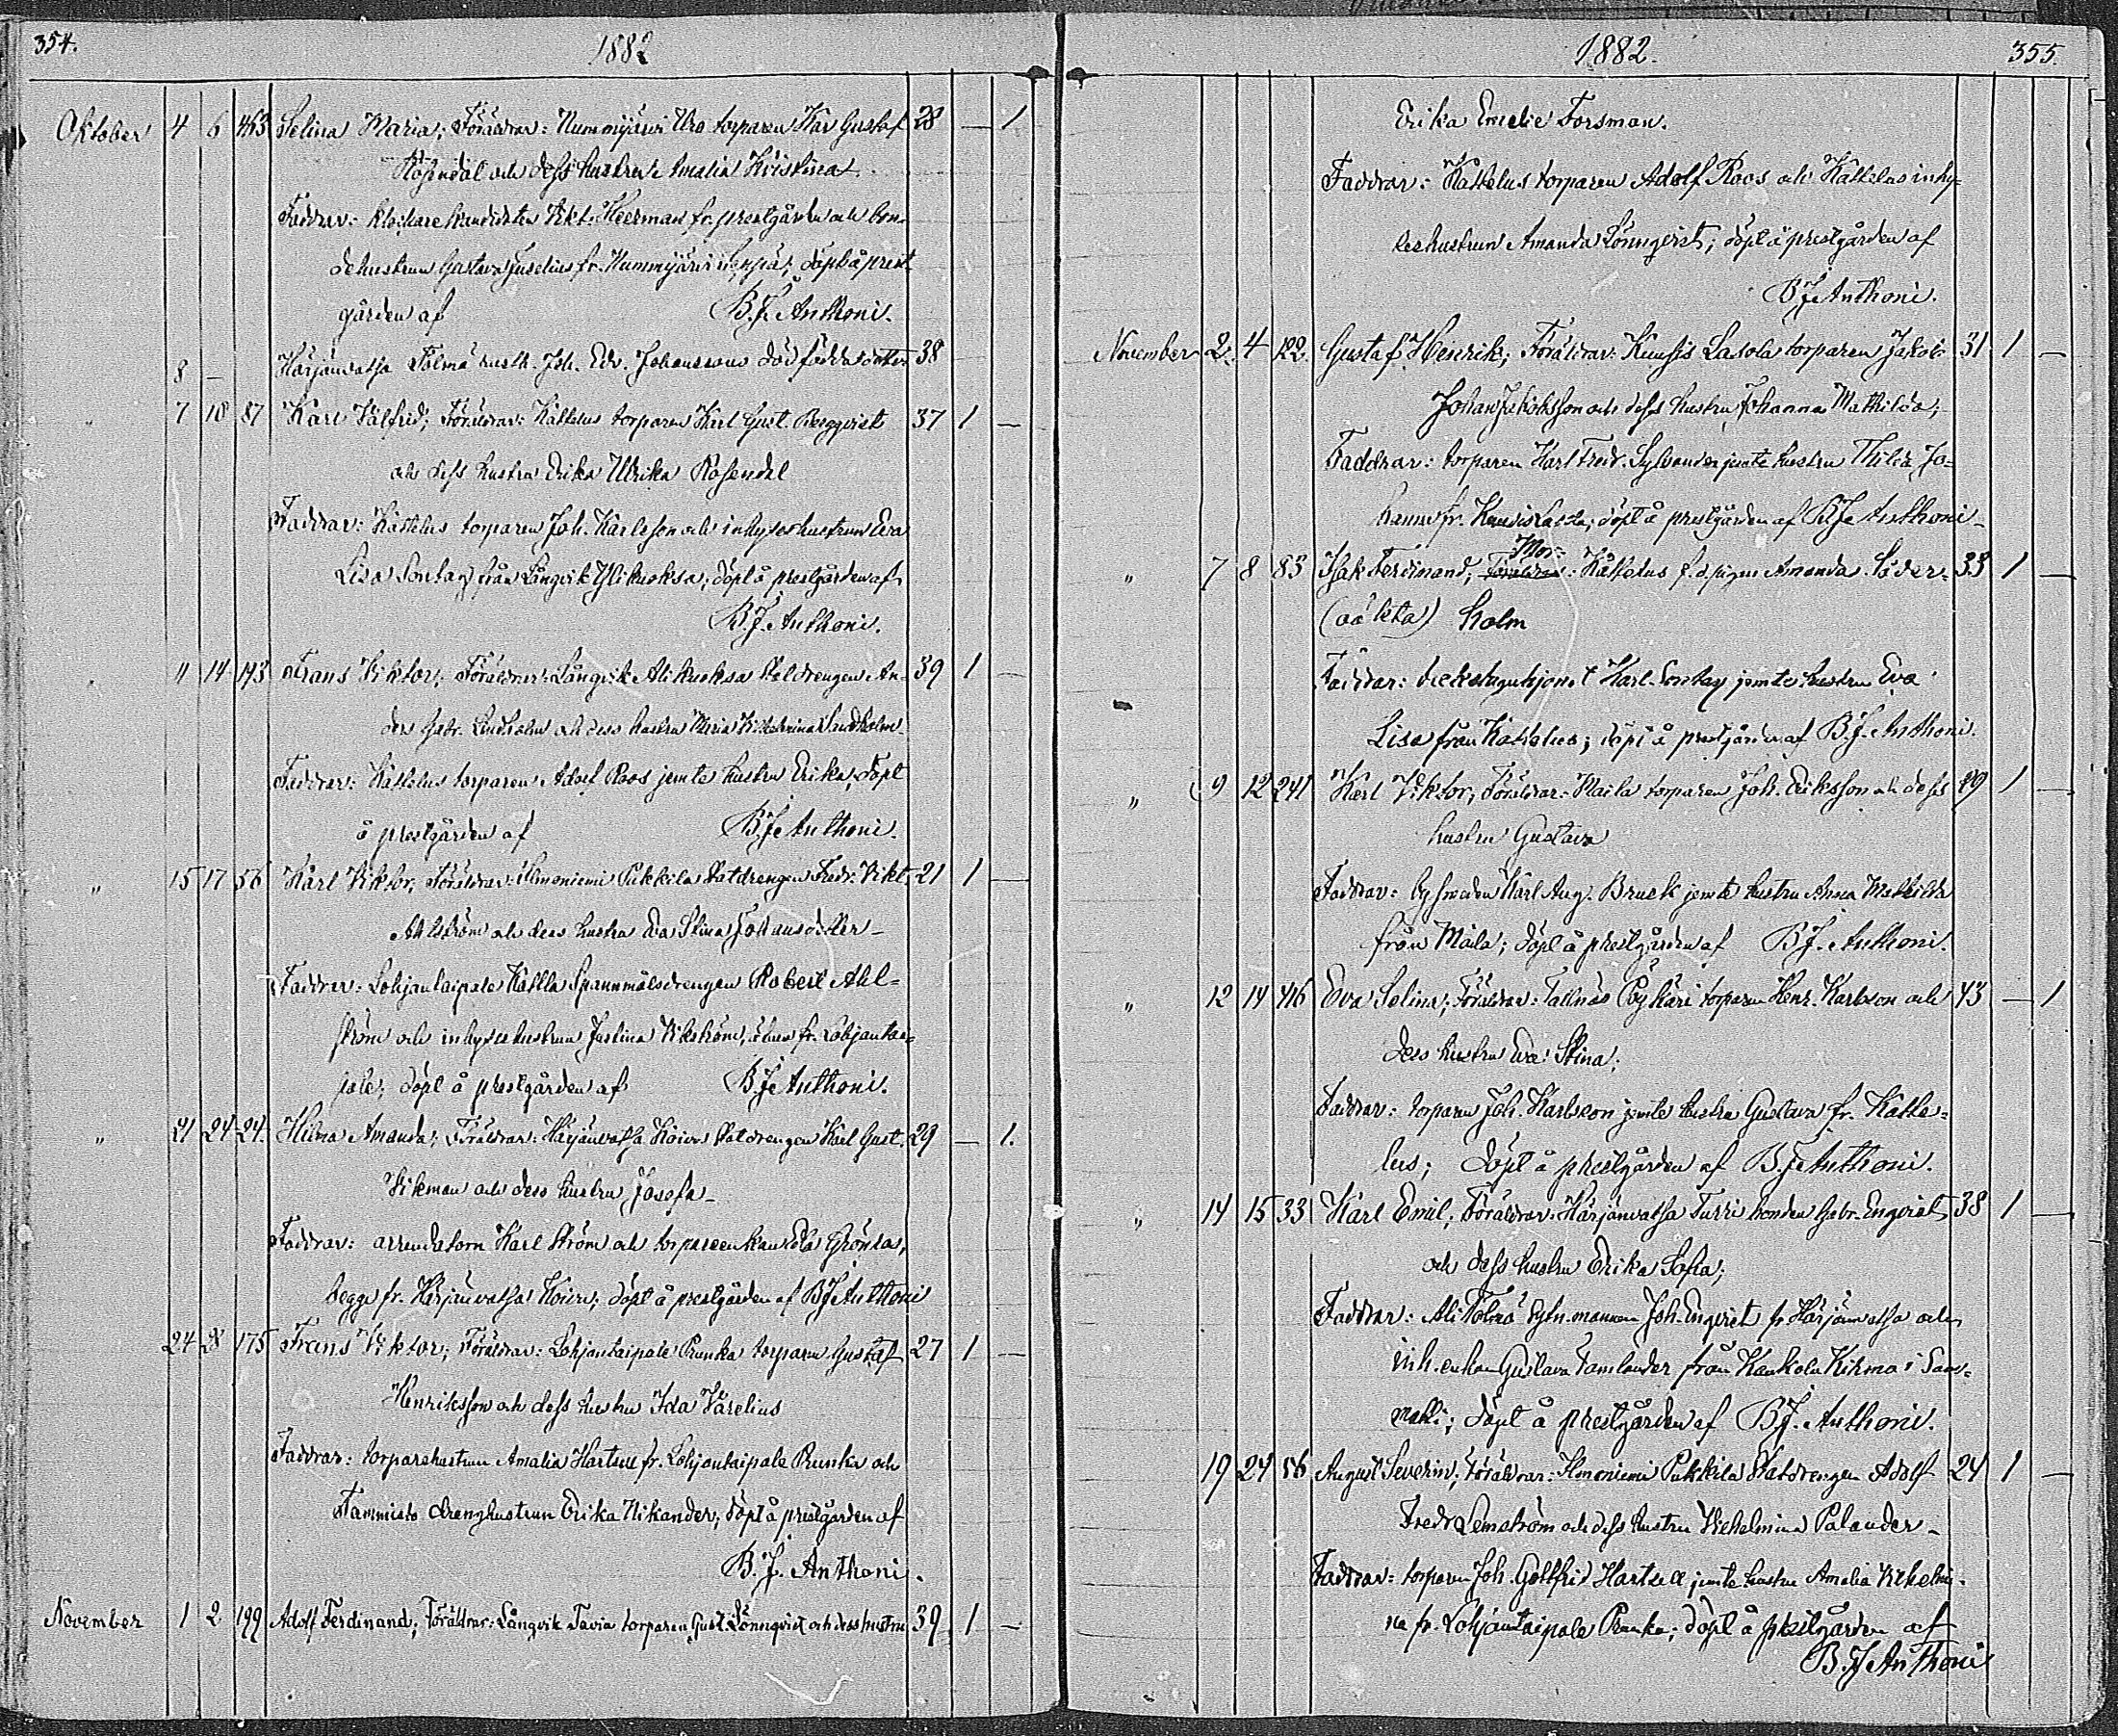 354.
1882
Oktober 4 6 463 Selina Maria; Föräldrar: Nummijärvi Uro torparen Kar Gustaf 28 — 1
Rosendal och dess hustru Amalia Kristina
Faddrar: klockare kandidaten Vikt. Heerman fr. prestgården och bon-
dehustrun Gustava Juselius fr. Nummijärvi Seppä; döpt å prest-
gården af B. J. Anthoni.
8 — Härjänvatsa Tolmä husb. Joh. Edv. Johanssons dödfödda dotter 38
" 7 10 87 Karl Valfrid; Föräldrar: Kattelus torparen Karl Gust. Bergqvist 37 1 —
och dess hustru Erika Ulrika Rosendal
Faddrar: Kattelus torparen Joh. Karlsson och inhyseshustrun Eva
Lisa Sontag från Långvik Ylikuoksa; döpt å prestgården af
B. J. Anthoni.
" 11 14 143 Frans Viktor; Föräldrar: Långvik Alikuoksa statdrengen An- 39 1 —
ders Gabr. Lindholm och dess hustru Maria Vilhelmina Lindholm.
Faddrar: Kattelus torparen Adolf Roos jemte hustru Erika; döpt
å prestgården af B. J. Anthoni.
" 15 17 56 Karl Viktor; Föräldrar: Ilmoniemi Pukkila statdrengen Fredr. Vikt. 21 1 —
Ahlström och dess hustru Eva Stina Johansdotter —
Faddrar: Lohjantaipale Kattla Spannmålsdrengen Robert Ahl-
ström och inhyseshustrun Justina Vikström, äfven fr. Lohjantai-
pale; döpt å prestgården af B. J. Anthoni.
" 21 24 24 Hilma Amanda; Föräldrar: Härjänvatsa Koivu statdrengen Karl Gust. 29 — 1.
Vikman och dess hustru Josefa —
Faddrar: arrendatorn Karl Ström och torpareenkan Lola Grönlas,
begge fr. Härjänvatsa Koivu; döpt å prestgården af B J Anthoni
24 28 175 Frans Viktor; Föräldrar: Lohjantaipale Prunka torparen Gustaf 27 1 —
Henriksson och dess hustru Ida Varelius
Faddrar: torparehustrun Amalia Hartzell fr. Lohjantaipale Prunka och
Tammisto drenghustrun Erika Nikander; döpt å prestgården af
B. J. Anthoni.
November 1 2 199 Adolf Ferdinand; Föräldrar: Långvik Tavia torparen Gust. Lönnqvist och dess hustru 39 1 —
1882.
355.
Erika Emelie Forsman.
Faddrar: Kattelus torparen Adolf Roos och Kattelus inhy-
seshustrun Amanda Lönnqvist; döpt å prestgården af
B J Anthoni.
November 2 4 122 Gustaf Henrik; Föräldrar: Kunsis Lassola torparen Jakob 31 1 —
Johan Jakobsson och dess hustru Johanna Mathilda;
Faddrar: torparen Karl Fredr. Sylvander jemte hustru Thilda Jo-
hanna fr. Kunsis Lassola; döpt å prestgården af B J Anthoni —
" 7 8 83 Isak Ferdinand; Föräldrar Mor: Kattelus f. d. pigan Amanda Söder- 33 1 —
(oäkta) holm
Faddrar: backstuguhjonet Karl Sontag jemte hustru Eva
Lisa från Kattelus; döpt å prestgården af B. J. Anthoni.
" 9 12 241 Karl Viktor; Föräldrar: Maila torparen Joh. Eriksson och dess 29 1 —
hustru Gustava
Faddrar: bysmeden Karl Aug. Brusk jemte hustru Anna Mathilda
från Maila; döpt å prestgården af B J. Anthoni.
" 12 14 416 Eva Selina; Föräldrar: Tallnäs Pöykäri torparen Henr. Karlsson och 43 — 1
dess hustru Eva Stina;
Faddrar: torparen Joh. Karlsson jemte hustru Gustava fr. Katte-
lus; döpt å prestgården af B. J. Anthoni.
" 14 15 33 Karl Emil; Föräldrar: Härjänvatsa Turri bonden Gabr. Enqvist 38 1 —
och dess hustru Erika Sofia;
Faddrar: Ali Tolmä bytn.mannen Joh. Enqvist fr. Härjänvatsa och
inh.enkan Gustava Tamlander från Kaukola Kihma i Sam-
matti; döpt å prestgården af B J. Anthoni.
19 24 56 August Severin; Föräldrar: Ilmoniemi Pukkila statdrengen Adolf 24 1 —
Fredr Lemström och dess hustru Vilhelmina Palander —
Faddrar: torparen Joh. Gottfrid Hartzell jemte hustru Amalia Vilhelmi-
na fr. Lohjantaipale Prunka; döpt å prestgården af
B. J Anthoni